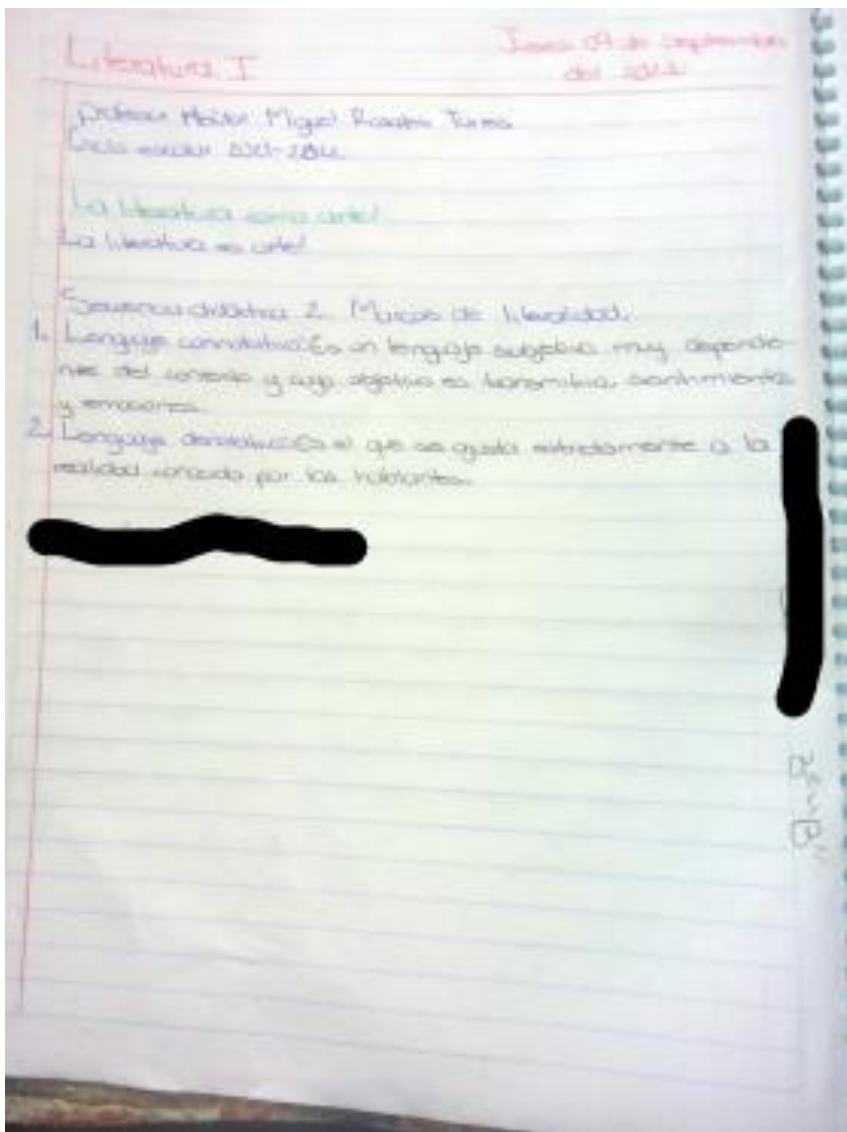 Literatura I
Jueves 09 de septiembre
del 2021
profesor Miguel Torres
Ciclo escolar 2021-2022
La literatura como arte!
La literatura es arte!
Secuencia didáctica 2. Marcas de literalidad.
1. Lenguaje connotativo: Es un lenguaje subjetivo muy dependie-
nte del contexto y cuyo objetivo es transmitir sentimientos
y emociones.
2. Lenguaje denotativo: Es el que se ajusta estrictamente a la
realidad conocida por los hablantes.
2° "B"